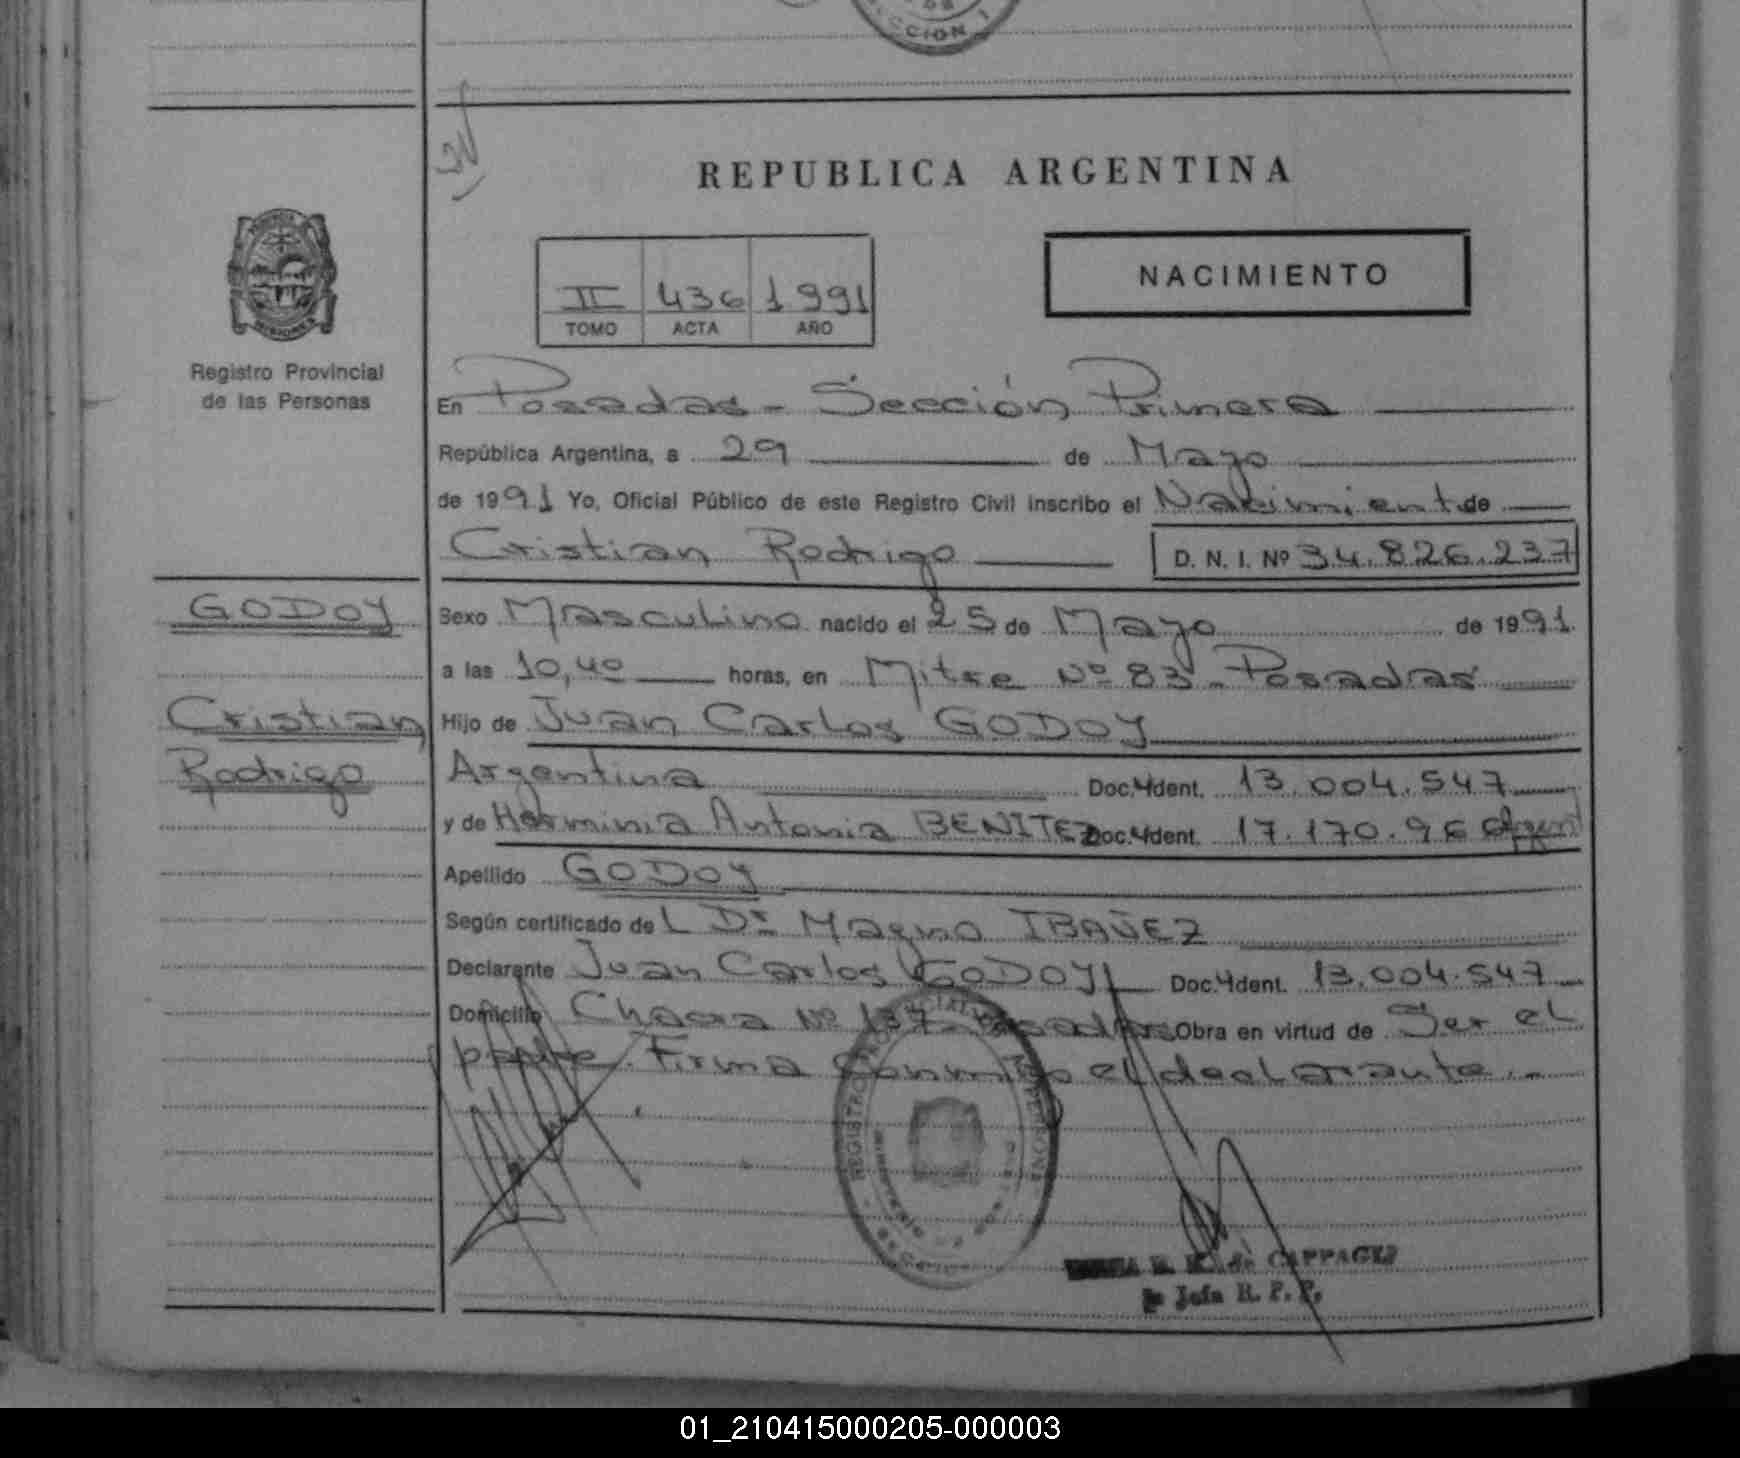 CCION 1
REPUBLICA ARGENTINA
II 436 1991
TOMO ACTA AÑO
NACIMIENTO
Registro Provincial
de las Personas
En Posadas - Sección Primera
República Argentina, a 29 de Mayo
de 1991 Yo, Oficial Público de este Registro Civil inscribo el Nacimiento de
Cristian Rodrigo D. N. I. Nº 34.826.237
GODOY
Cristian
Rodrigo
Sexo Masculino nacido el 25 de Mayo de 1991.
a las 10,40 horas, en Mitre Nº 83 - Posadas
Hijo de Juan Carlos GODOY
Argentina Doc. Ident. 13.004.547
y de Herminia Antonia BENITEZ Doc. Ident. 17.170.96
Apellido GODOY
Según certificado del Dr Magno IBAÑEZ
Declarante Juan Carlos GODOY Doc. Ident. 13.004.547
Domicilio Chacra Nº 137 - Posadas Obra en virtud de Ser el
padre. Firma conmigo el declarante.-
REGISTRO PROVINCIAL
de CAPPAGLI
Jefa R. P. P.
01_210415000205-000003